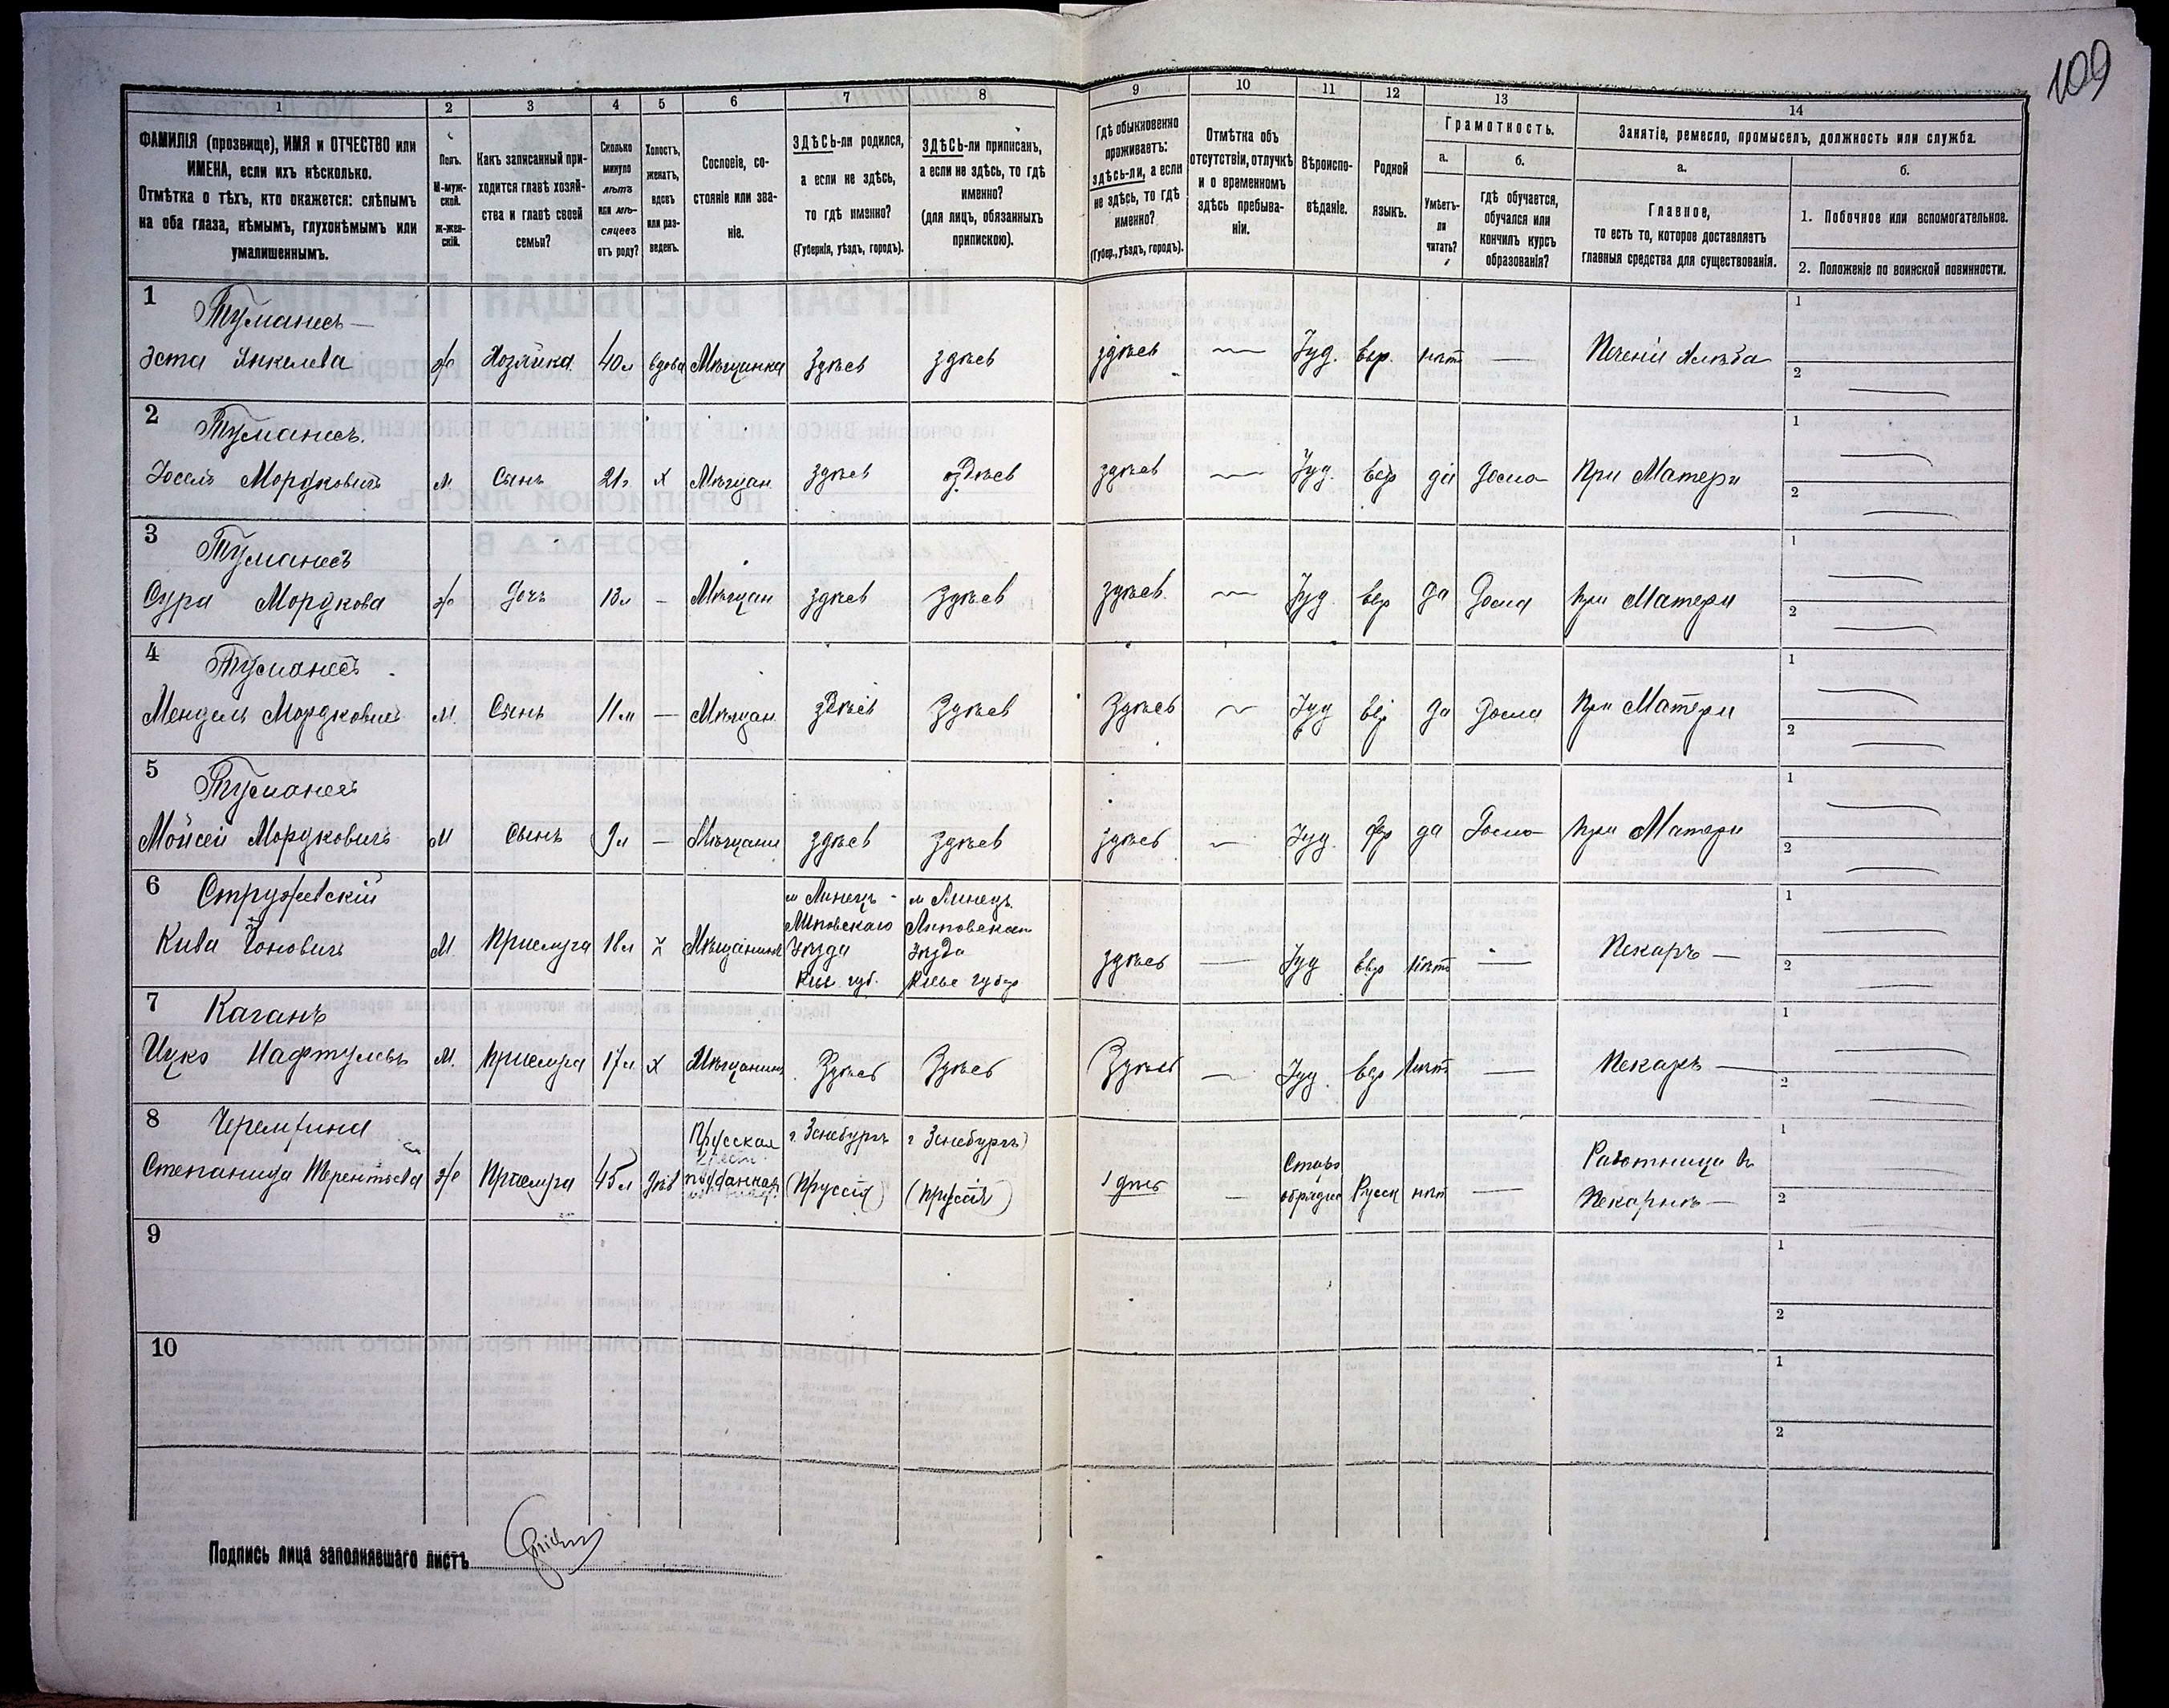 109
1 2 3 4 5 6 7 8 9 10 11 12 13 14
ФАМИЛІЯ (прозвище), ИМЯ и ОТЧЕСТВО или
ИМЕНА, если ихъ нѣсколько.
Отмѣтка о тѣхъ, кто окажется: слѣпымъ
на оба глаза, нѣмымъ, глухонѣмымъ или
умалишеннымъ.
Полъ.
М-муж-
ской.
ж-жен-
скій.
Какъ записанный при-
ходится главѣ хозяй-
ства и главѣ своей
семьи?
Сколько
минуло
лѣтъ
или мѣ-
сяцевъ
отъ роду?
Холостъ,
женатъ,
вдовъ
или раз-
веденъ.
Сословіе, со-
стояніе или зва-
ніе.
ЗДѢСЬ-ли родился,
а если не здѣсь,
то гдѣ именно?
(Губернія, уѣздъ, городъ).
ЗДѢСЬ-ли приписан,
а если не здѣсь, то гдѣ
именно?
(для лицъ, обязанныхъ
припискою).
Гдѣ обыкновенно
проживаетъ:
здѣсь-ли, а если
не здѣсь, то гдѣ
именно?
(Губер., уѣздъ, городъ).
Отмѣтка объ
отсутствіи, отлучкѣ
и о временномъ
здѣсь пребыва-
ніи.
Вѣроиспо-
вѣданіе.
Родной
языкъ.
Грамотность.
а.
Умѣетъ-
ли
читать?
б.
гдѣ обучается,
обучался или
кончилъ курсъ
образованія?
Занятіе, ремесло, промыселъ, должность или служба.
а.
Главное,
то есть то, которое доставляетъ
главныя средства для существованія.
б.
1. Побочное или вспомогательное.
2. Положеніе по воинской повинности.
1 Туманесъ
Эста Янкелева ж Хозяйка 40л вдова Мѣщанка Здѣсь здѣсь здѣсь — Іуд. Евр. нѣтъ — Печеніе Хлѣба 1 2
2 Туманесъ.
Іосель Мордковичъ М Сынъ 21г. х Мѣщан здѣсь здѣсь здѣсь — Іуд. Евр да Дома При Матери 1 2
3 Туманесъ
Сура Мордкова ж Дочь 13л — Мѣщан здѣсь здѣсь здѣсь — Іуд. Евр да Дома при Матери 1 2
4 Туманесъ
Мендель Мордковичъ М. Сынъ 11л — Мѣщан здѣсь Здѣсь Здѣсь — Іуд Евр да Дома При Матери 1 2
5 Туманесъ
Мойсей Мордковичъ М Сынъ 9л — Мѣщани здѣсь здѣсь здѣсь — Іуд. Евр да Дома при Матери 1 2
6 Стружевскій
Кива М Приемуга 18л х Мѣщанинъ м Линецъ Липовскаго Уѣзда Кіев. губ. м Линецъ Уѣзда здѣсь — Іуд Евр нѣтъ — Пекаръ 1 2
7 Каганъ
Ицко Нафтулевъ М. приемуга 17л х Мѣщанинъ Здѣсь Здѣсь Здѣсь — Іуд. Евр нѣтъ — Пекаръ 1 2
8
Степанида Терентьева ж Приемуга 45л дѣв Прусская подданная (Пруссія) (Пруссія) здѣсь — Старо обрядч Русск нѣт — Работница въ Пекарнѣ 1 2
9 1 2
10 1 2
Подпись лица заполнявшаго листъ